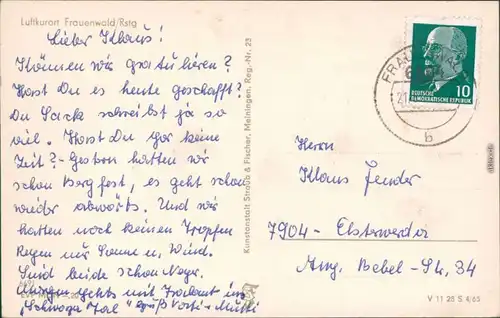 Luftkurort Frauenwald/Rstg
Lieber Klaus!
Können wir gratulieren?
Hast Du es heute geschafft?
Du schreibst ja so
viel. Hast Du gar keine
Zeit? - Gestern hatten wir
schon Bergfest, es geht schon
wieder abwärts. Und wir
hatten noch keinen Tropfen
Regen nur Sonne u. Wind.
Sind beide schon Neger.
Morgen gehts mit Trabant ins
"Schwarza Tal" Gruß Vati + Mutti
Kunstanstalt Straub & Fischer, Meiningen, Reg.-Nr. 23
FRAU
b
DEUTSCHE
DEMOKRATISCHE REPUBLIK
10
Herrn
Klaus
7904 - Elsterwerda
Aug. Bebel-Str. 34
V 11 28 S 4/65